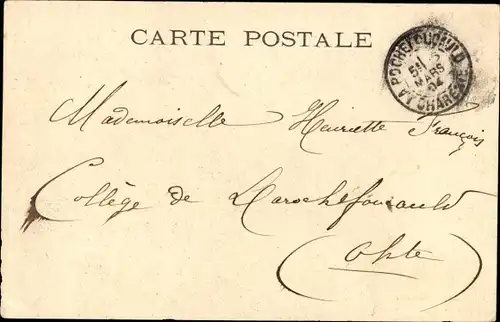 CARTE POSTALE
LA ROCHEFOUCAULD
5E 2
MARS
04
CHARENTE
Mademoiselle Henriette François
Collège de Larochefoucauld
(Chte)